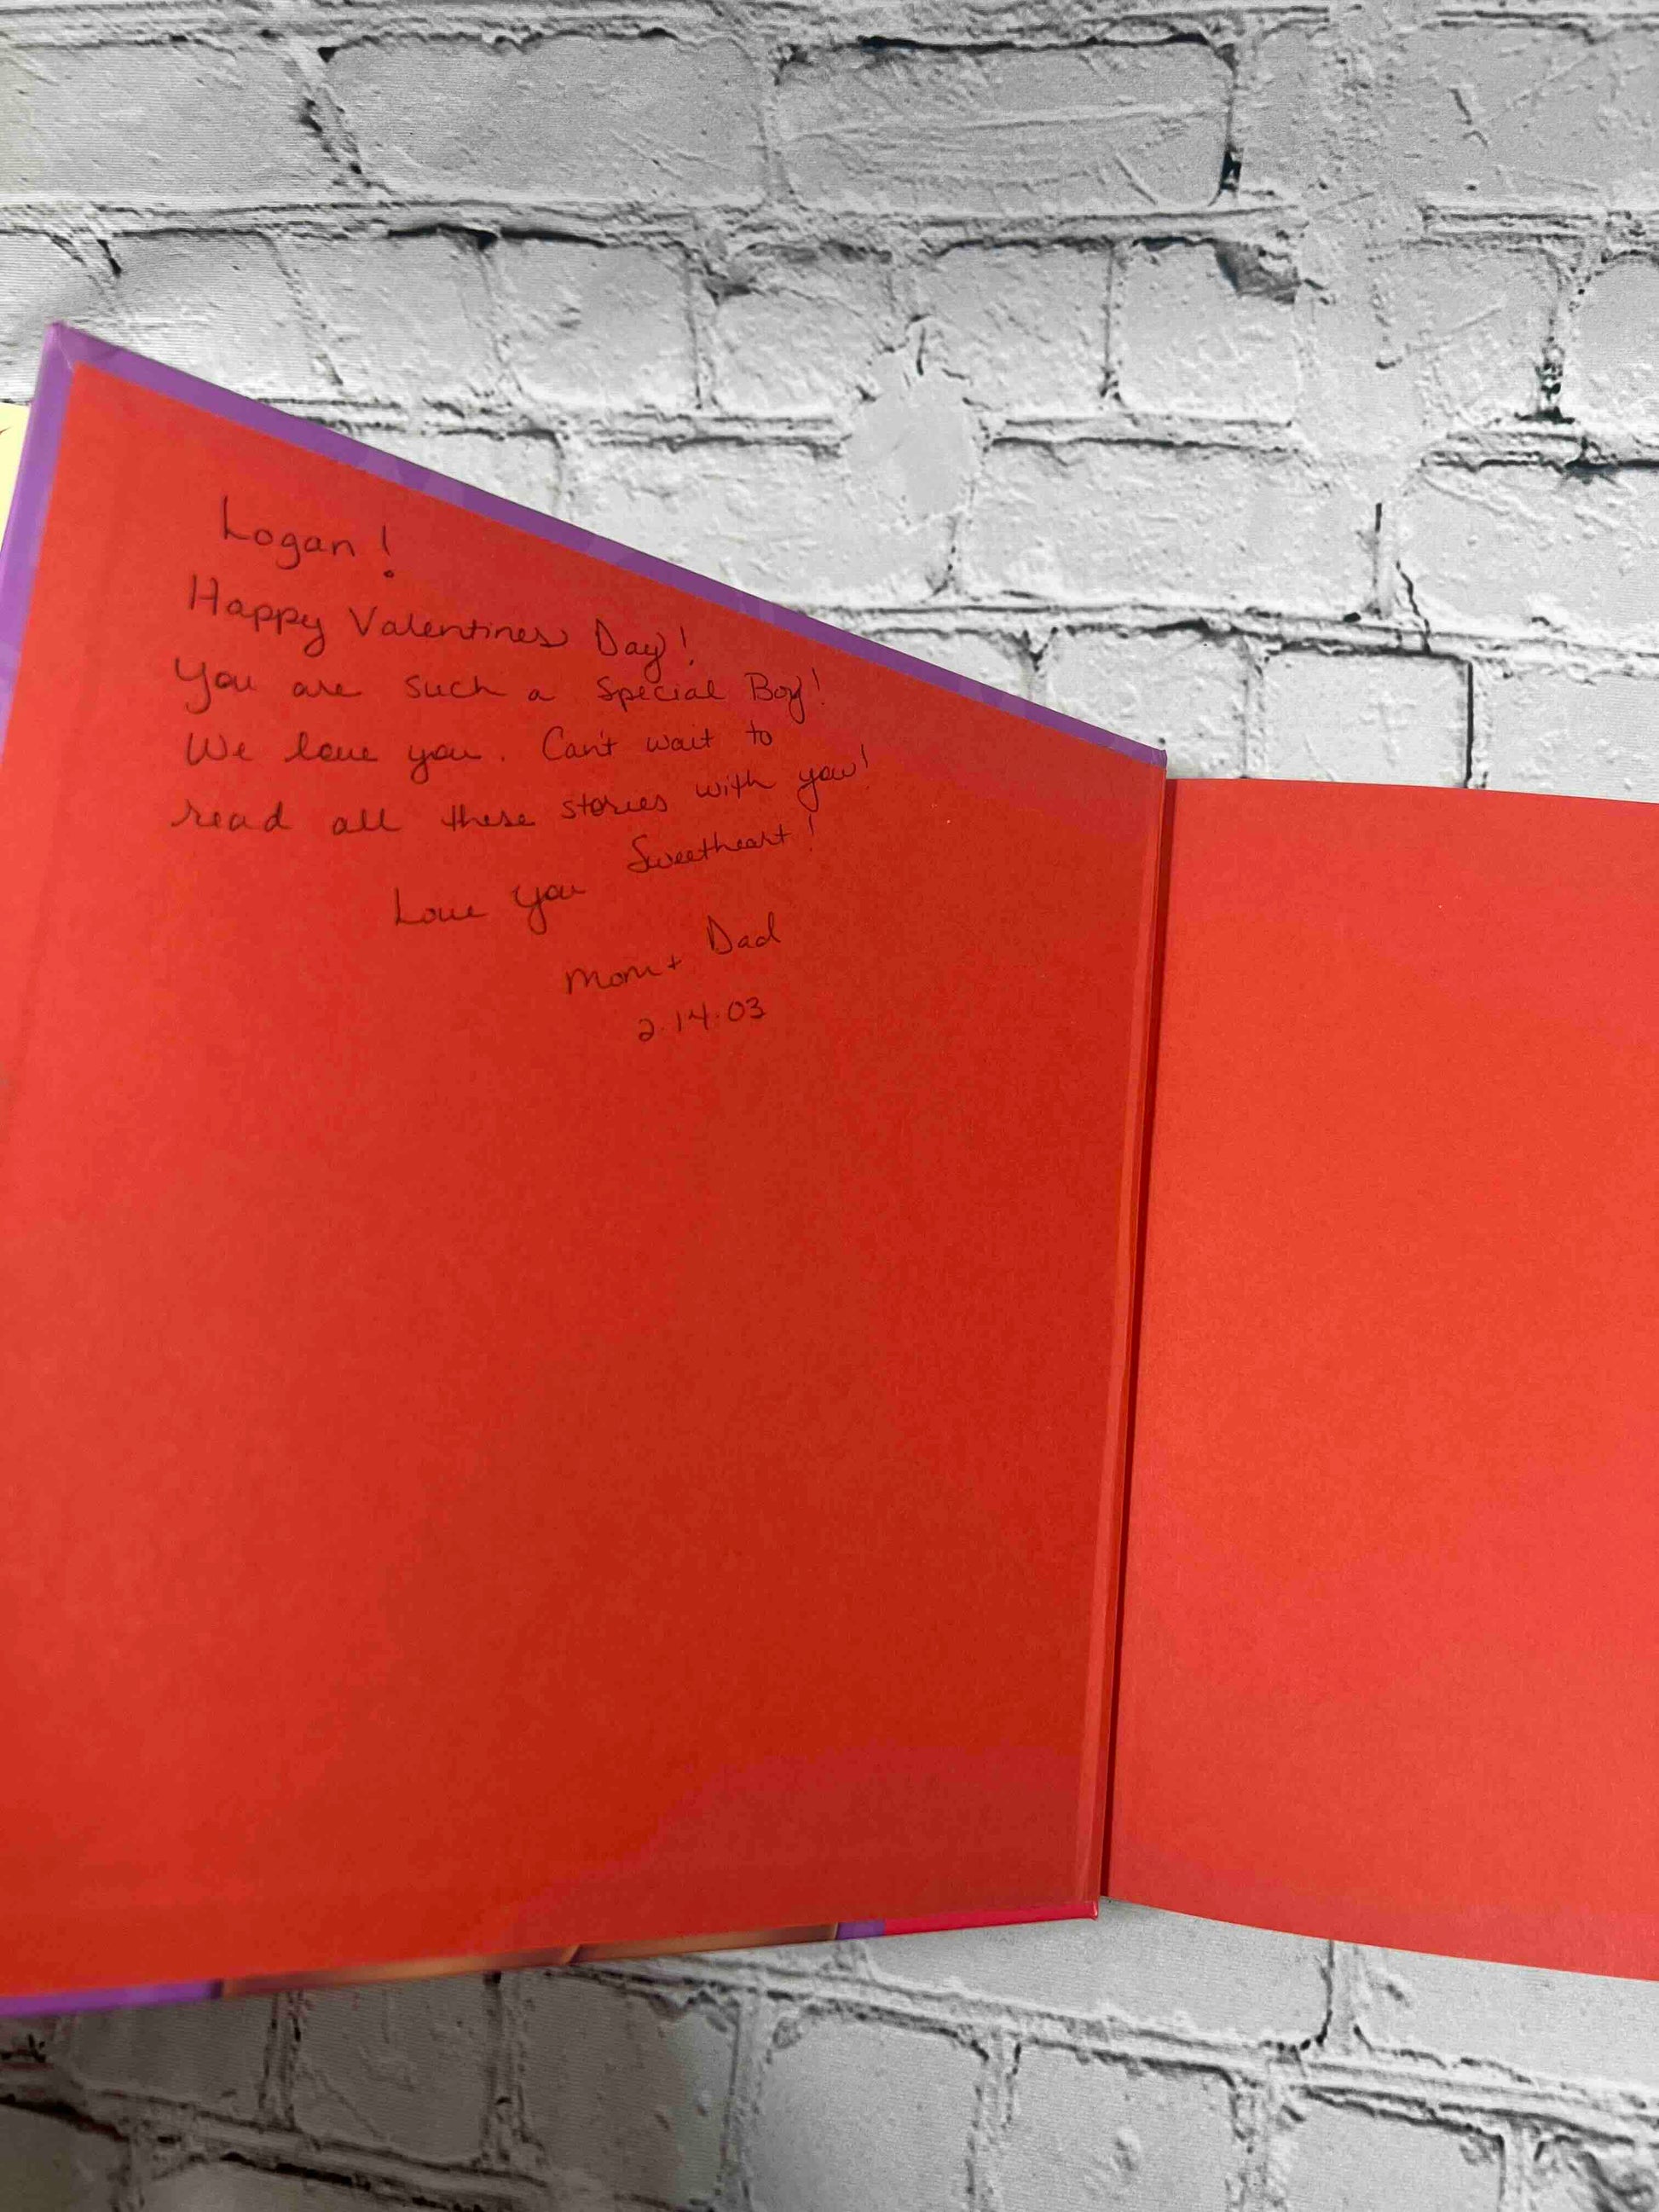 Logan!
Happy Valentines Day!
You are such a Special Boy!
We love you. Can't wait to
read all these stories with you!
Love you Sweetheart!
Mom + Dad
2.14.03